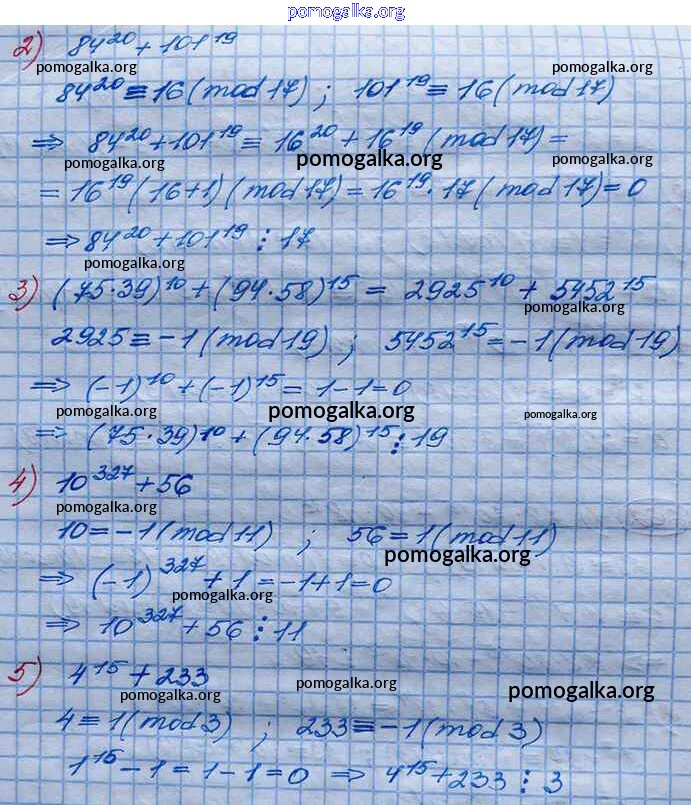 pomogalka.org
2) 84²⁰ + 101¹⁹
pomogalka.org pomogalka.org pomogalka.org
84²⁰ ≡ 16 (mod 17) ; 101¹⁹ ≡ 16 (mod 17)
⇒ 84²⁰ + 101¹⁹ ≡ 16²⁰ + 16¹⁹ (mod 17) =
pomogalka.org pomogalka.org
= 16¹⁹ (16+1) (mod 17) = 16¹⁹ · 17 (mod 17) = 0
⇒ 84²⁰ + 101¹⁹ ⋮ 17
pomogalka.org
3) (75·39)¹⁰ + (94·58)¹⁵ = 2925¹⁰ + 5452¹⁵
pomogalka.org
2925 ≡ -1 (mod 19) ; 5452¹⁵ = -1 (mod 19)
⇒ (-1)¹⁰ + (-1)¹⁵ = 1 - 1 = 0
pomogalka.org pomogalka.org pomogalka.org
⇒ (75·39)¹⁰ + (94·58)¹⁵ ⋮ 19
4) 10³²⁷ + 56
pomogalka.org
10 = -1 (mod 11) ; 56 = 1 (mod 11)
pomogalka.org
⇒ (-1)³²⁷ + 1 = -1 + 1 = 0
pomogalka.org
⇒ 10³²⁷ + 56 ⋮ 11
5) 4¹⁵ + 233
pomogalka.org pomogalka.org pomogalka.org
4 ≡ 1 (mod 3) ; 233 ≡ -1 (mod 3)
1¹⁵ - 1 = 1 - 1 = 0 ⇒ 4¹⁵ + 233 ⋮ 3